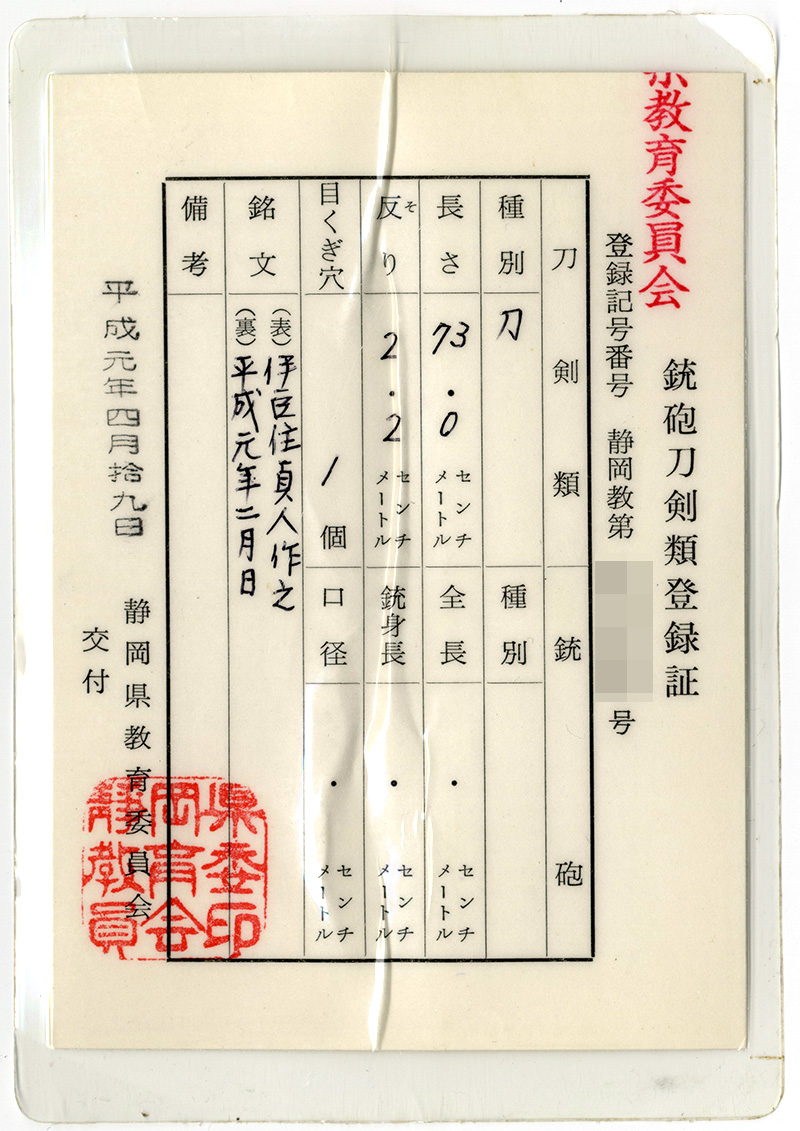 県教育委員会
銃砲刀剣類登録証
登録記号番号 静岡教第 号
刀剣類
種別 刀
長さ 73.0 センチメートル
反り そ 2.2 センチメートル
目くぎ穴 1個
銘文 (表)伊豆住貞人作之
(裏)平成元年二月日
備考
銃砲
種別
全長 ・ センチメートル
銃身長 ・ センチメートル
口径 ・ センチメートル
平成元年四月拾九日
静岡県教育委員会
交付
静岡県教育委員会印